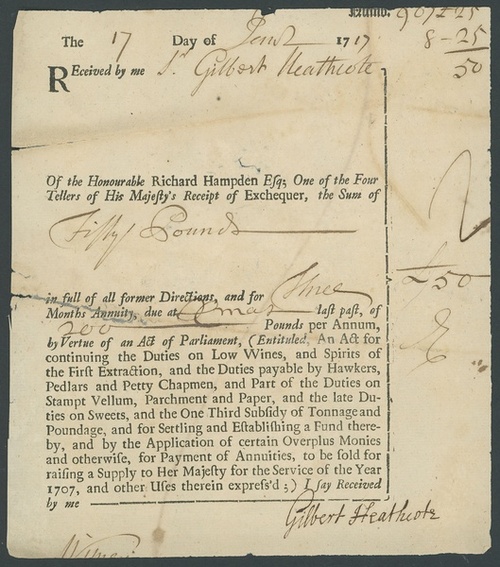 Numb. 907 & 25
8 - 25
50
The 17 Day of 1717
Received by me Sr Gilbert Heathcote
Of the Honourable Richard Hampden Esq; One of the Four
Tellers of His Majesty's Receipt of Exchequer, the Sum of
Fifty Pounds
in full of all former Directions, and for Three
Months Annuity, due at Xmas last past, of
£50
200 Pounds per Annum,
by Vertue of an Act of Parliament, (Entituled, An Act for
continuing the Duties on Low Wines, and Spirits of
the First Extraction, and the Duties payable by Hawkers,
Pedlars and Petty Chapmen, and Part of the Duties on
Stampt Vellum, Parchment and Paper, and the late Du-
ties on Sweets, and the One Third Subsidy of Tonnage and
Poundage, and for Settling and Establishing a Fund there-
by, and by the Application of certain Overplus Monies
and otherwise, for Payment of Annuities, to be sold for
raising a Supply to Her Majesty for the Service of the Year
1707, and other Uses therein express'd;) I say Received
by me
Gilbert Heathcote
Witness